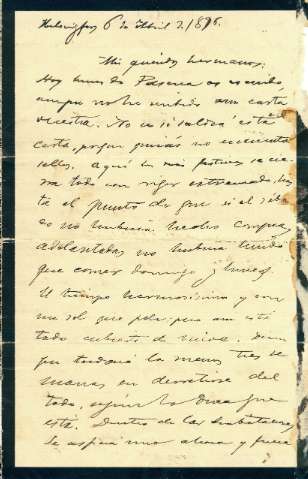 Helsingfors 6 de Abril de 1896.
Mi querido hermanos:
Hoy lunes de Pascua os escribo
aunque no he recibido aun carta
vuestra. No se si saldrá esta
carta, porque quizás no encuentre
sellos. Aquí en días festivos se cie-
rra todo con rigor extremado, has-
ta el punto de que si el sába-
do no hubiera hecho compras
adelantadas no hubiera tenido
que comer domingo y lunes.
El tiempo hermosísimo y con
un sol que pela; pero aun está
todo cubierto de nieve. Dicen
que tardará lo menos tres se-
manas en derretirse del
todo, según lo dura que
está. Dentro de las habitaciones
se aspira una a